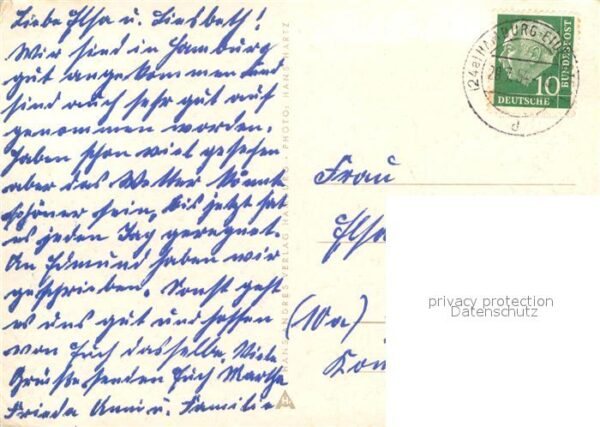 Liebe Elsa u. Liesbeth!
Wir sind in Hamburg
gut angekommen und
sind auch sehr gut auf
genommen worden.
Haben schon viel gesehen
aber das Wetter könnte
schöner sein, bis jetzt hat
es jeden Tag geregnet.
An Edmund haben wir
geschrieben. Sonst geht
es uns gut und hoffen
von Euch dasselbe. Viele
Grüße senden Euch Martha
Frieda Anni u. Familie
HANS ANDRES VERLAG HAMBURG · PHOTO: HANS HARTZ
HA
(24a) HAMBURG-
d
10
DEUTSCHE BUNDESPOST
Frau
Elsa
(10a)
privacy protection
Datenschutz